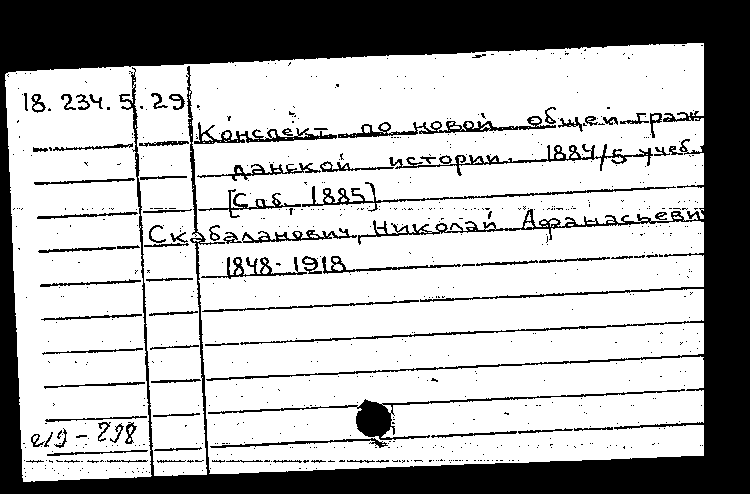 18. 234. 5. 29.
Конспект по новой общей граж
данской истории. 1884/5 учеб.
[Спб, 1885]
Скабаланович, Николай Афанасьеви
1848-1918
219-298